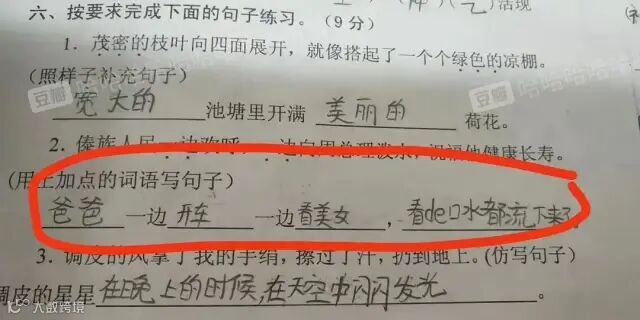 六、按要求完成下面的句子练习。（9分）
活现
1．茂密的枝叶向四面展开，就像搭起了一个个绿色的凉棚。
（照样子补充句子）
宽大的 池塘里开满 美丽的 荷花。
2．傣族人民一边欢呼，一边向周总理泼水，祝福他健康长寿。
（用上加点的词语写句子）
爸爸一边开车一边看美女，看de口水都流下来了
3．调皮的风拿了我的手绢，擦过了汗，扔到地上。（仿写句子）
调皮的星星在晚上的时候，在天空中闪闪发光。
豆瓣
豆瓣
大数跨境